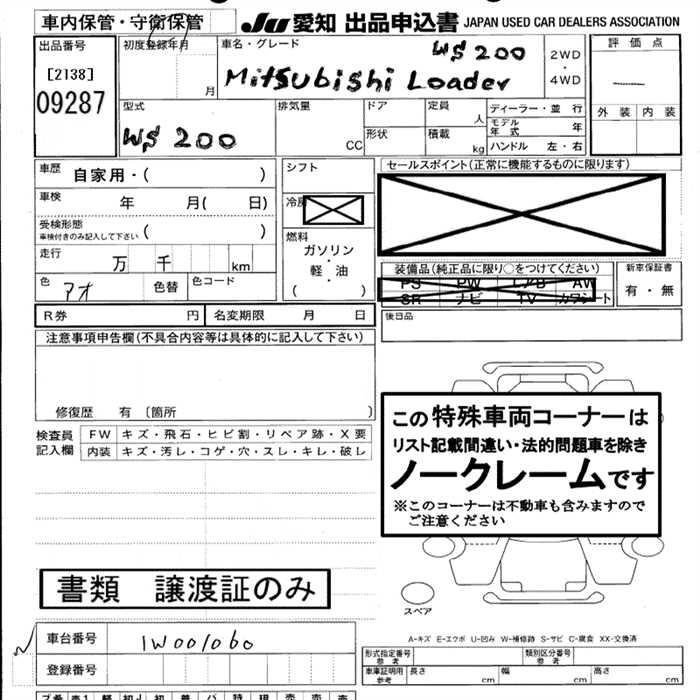 車内保管・守衛保管
JU 愛知 出品申込書 JAPAN USED CAR DEALERS ASSOCIATION
出品番号
[2138]
09287
初度登録年月
月
車名・グレード
WS 200
Mitsubishi Loader
2WD
・
4WD
評価点
外装 内装
型式
WS 200
排気量
CC
ドア
形状
定員
人
積載
kg
ディーラー・並行
モデル年式 年
ハンドル 左・右
車歴
自家用・( )
車検
年 月( 日)
受検形態
車検付きのみ記入して下さい ( )
走行
万 千 km
色
アオ
色替
色コード
シフト
冷房
燃料
ガソリン
・
軽・油
( )
セールスポイント(正常に機能するものに限ります)
装備品(純正品に限り○をつけてください)
PS PW エアB AW
SR ナビ TV カワシート
新車保証書
有・無
R券 円
名変期限 月 日
後日品
注意事項申告欄(不具合内容等は具体的に記入して下さい)
修復歴 有 〔箇所 〕
検査員
記入欄
FW キズ・飛石・ヒビ割・リペア跡・X要
内装 キズ・汚レ・コゲ・穴・スレ・キレ・破レ
この特殊車両コーナーは
リスト記載間違い・法的問題車を除き
ノークレームです
※このコーナーは不動車も含みますので
ご注意ください
書類 譲渡証のみ
スペア
A-キズ E-エクボ U-凹み W-補修跡 S-サビ C-腐食 XX-交換済
車台番号
1W001060
登録番号
形式指定番号
参考
類別区分番号
参考
車庫証明用
参考
長さ cm
幅 cm
高さ cm